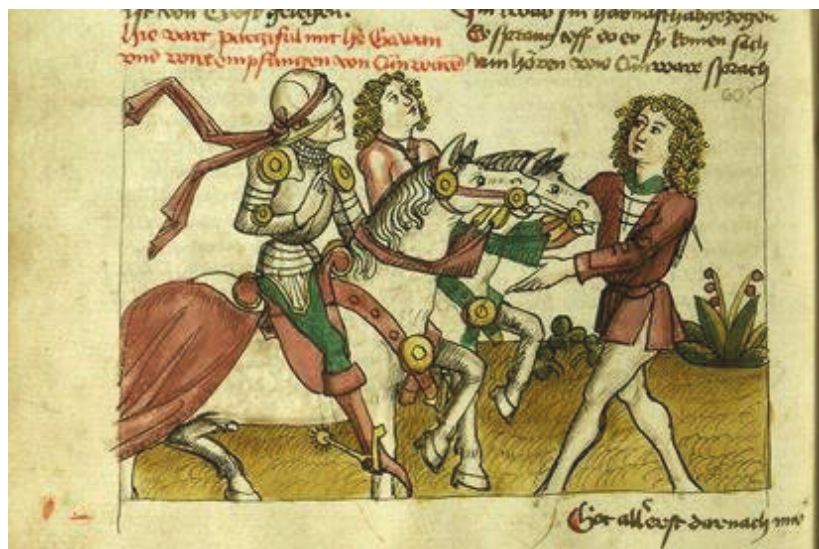 ist von gelegen.
Hie vart partzifal mit h' Gawan
vnd wart empfangen von Cunware
Im ward sin abgezogen
Er sprang vff do er sy komen sach
Nun hören wie Cunware sprach
Got all'erst darnach